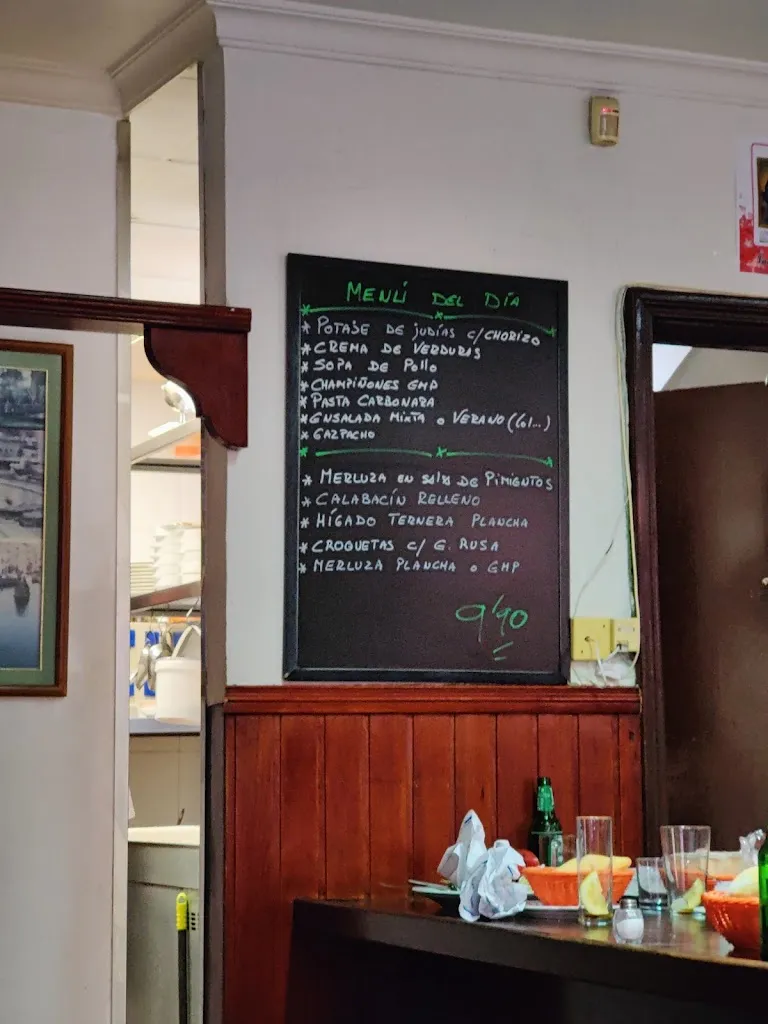 MENÚ DEL DÍA
* POTAJE DE JUDÍAS C/CHORIZO
* CREMA DE VERDURAS
* SOPA DE POLLO
* CHAMPIÑONES GMP
* PASTA CARBONARA
* ENSALADA MIXTA O VERANO (Col...)
* GAZPACHO
* MERLUZA EN SALSA DE PIMIENTOS
* CALABACÍN RELLENO
* HÍGADO TERNERA PLANCHA
* CROQUETAS C/ G. RUSA
* MERLUZA PLANCHA O GMP
9'90